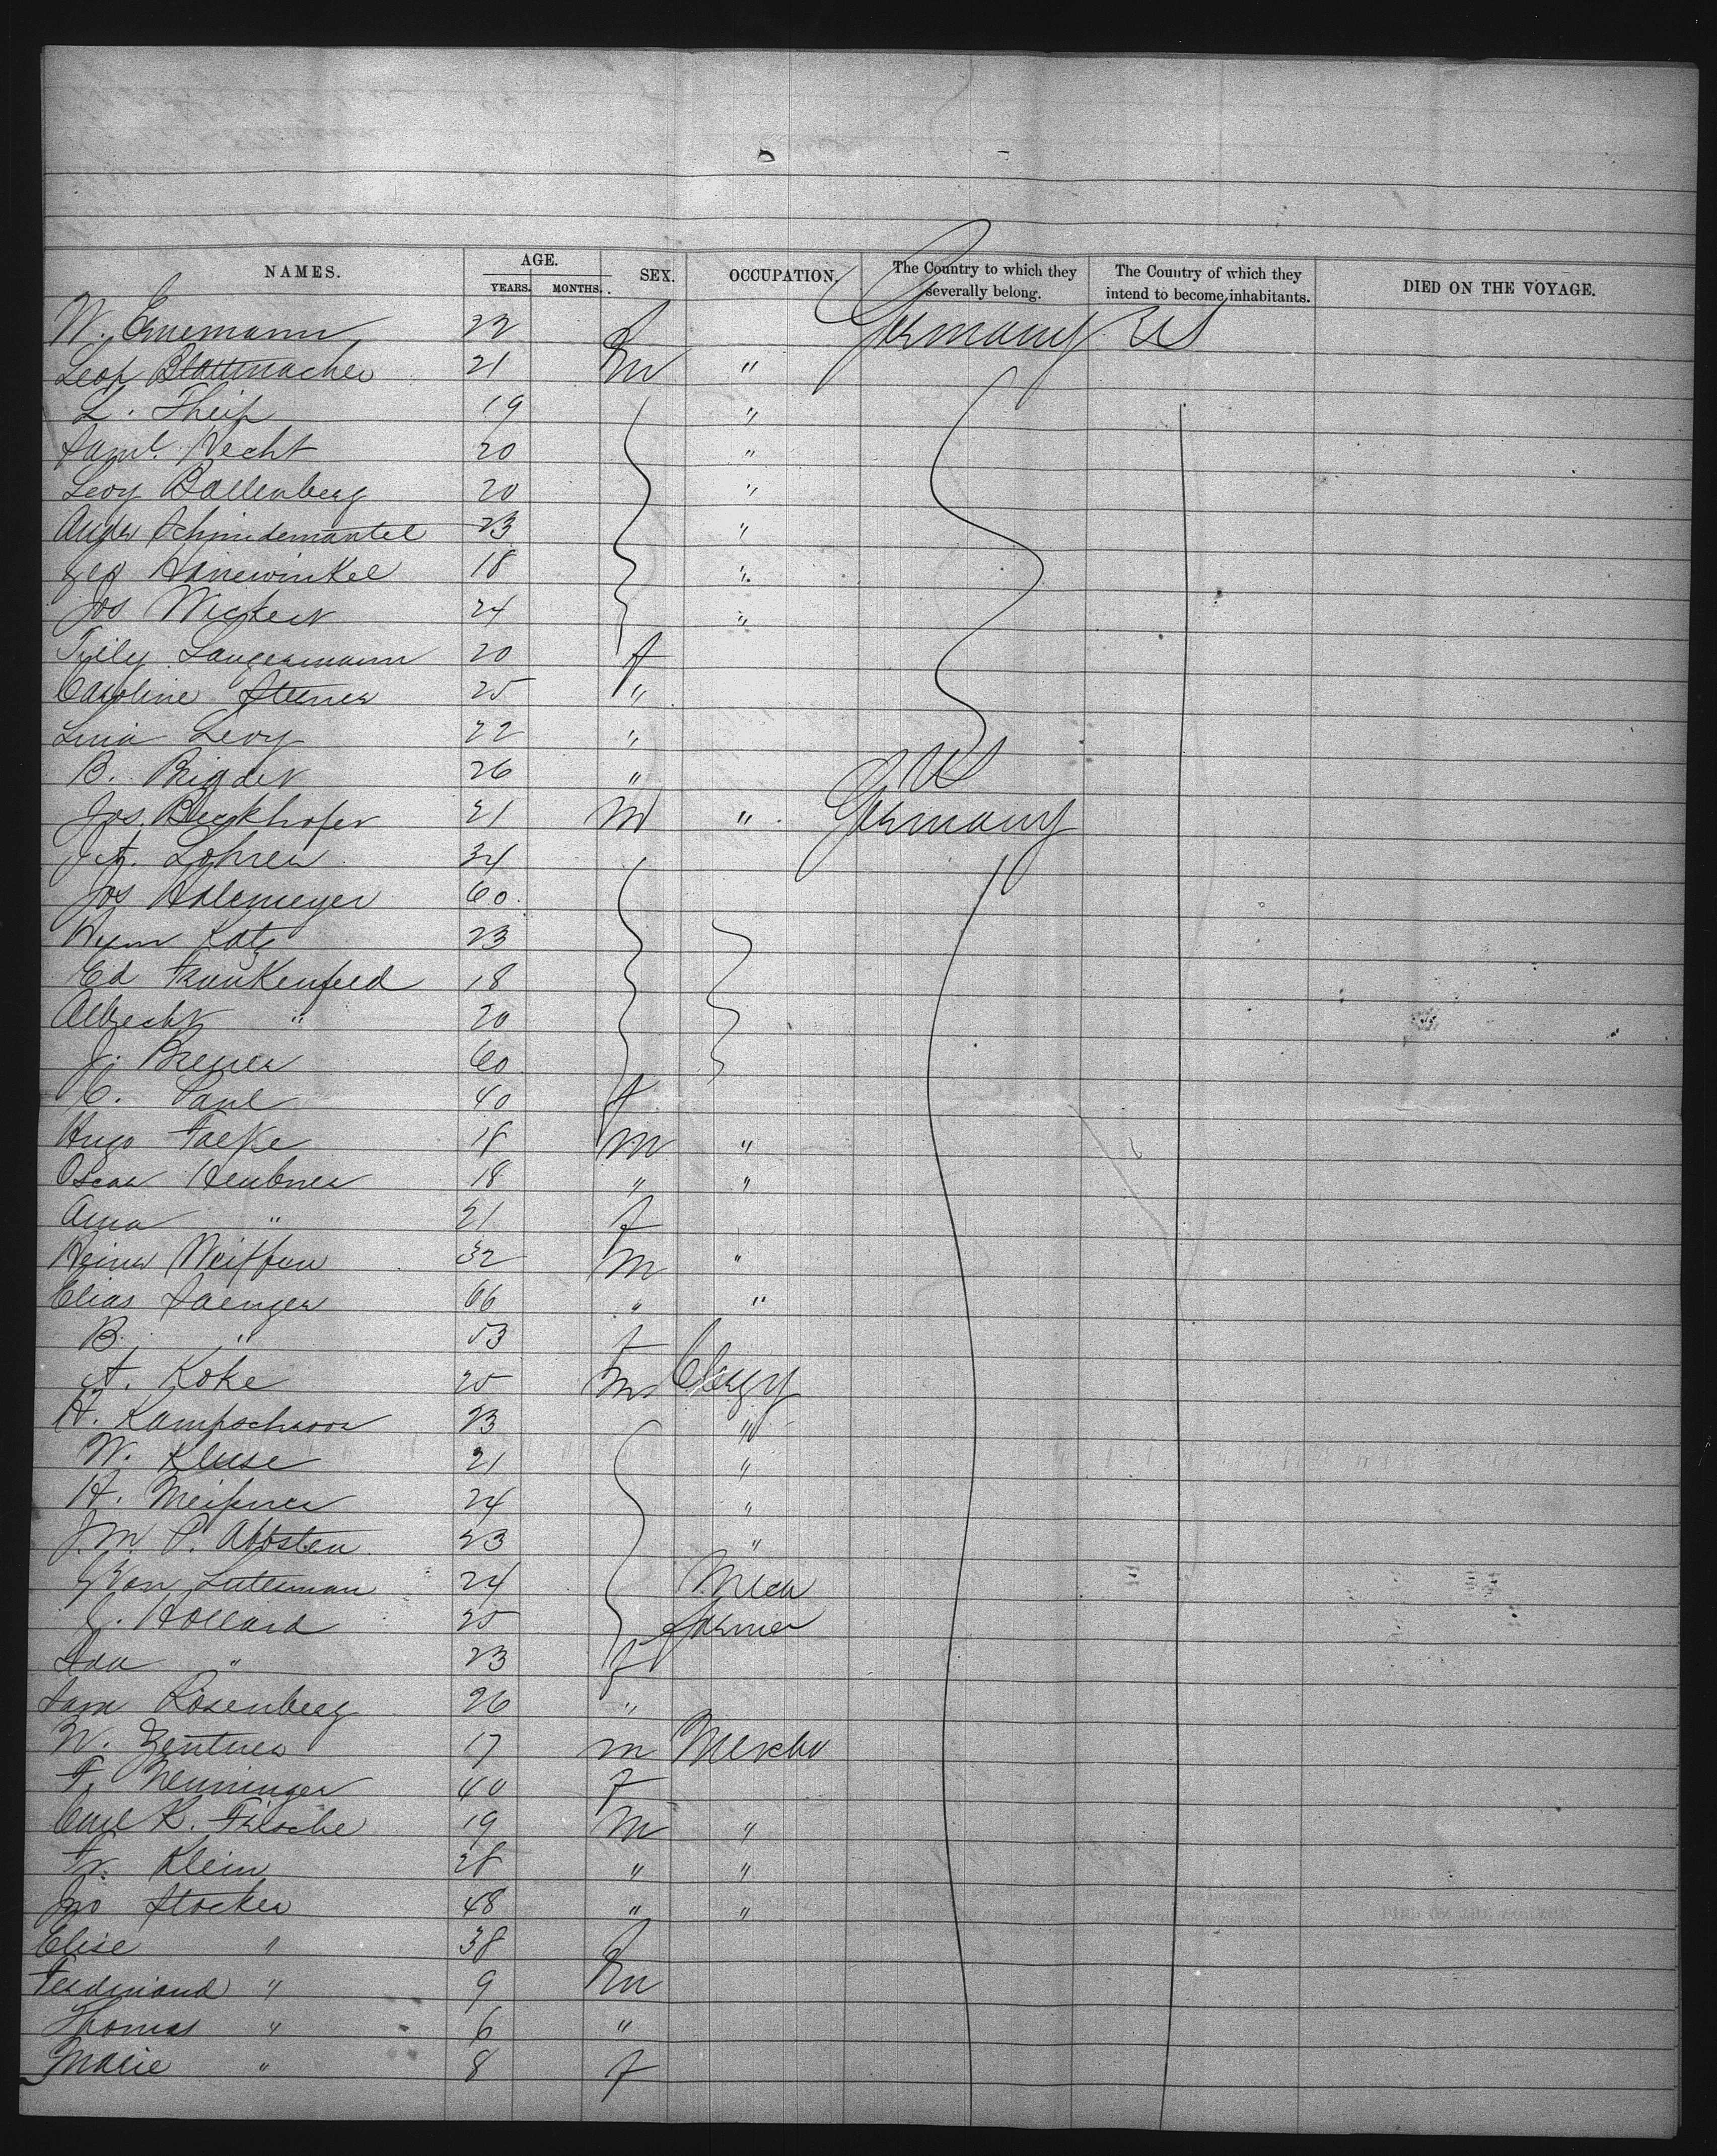 NAMES. AGE. SEX. OCCUPATION. The Country to which they severally belong. The Country of which they intend to become inhabitants. DIED ON THE VOYAGE.
YEARS. MONTHS.
W. 22 f Germany US
Leop Blattmacher 21 m "
L. Theis 19 "
Saml. Hecht 20 "
Levy Ballenberg 20 "
Schmidemantel 23 "
Geo Hanewinkel 18 "
Jos Wickert 24 "
Tilly Langermann 20 f
Caroline Steiner 25 "
Lina Levy 22 "
B. Rigder 26 " US
Jos. Beckhofer 21 m " Germany
Lohrer 34
Jos Hallemeyer 60
Katz 23
Ed Frankenfeld 18
Albrecht " 20
J. Breuer 60
C. Paul 40 f
Hugo Falke 18 m "
Oscar Heubner 18 " "
Anna " 21 f
Heinr 32 m "
Elias Saenger 66 " "
B. " 53 f
A. Koke 25 m Clergy
H. Kampschroer 23 "
W. Kluse 21 "
H. Meisner 24 "
J. M. P. Abbsten 23 "
Luterman 24 Mech
J. Hollard 25 Farmer
Ida " 23 f
Sara Rosenberg 26 "
W. Zentner 17 m Mercht
F. Nenninger 40 f
Carl R. Fritsche 19 m "
Fr. Klein 28 " "
Jno Stocker 48 " "
Elise " 38 f
Ferdinand " 9 m
Thomas " 6 "
Marie " 8 f